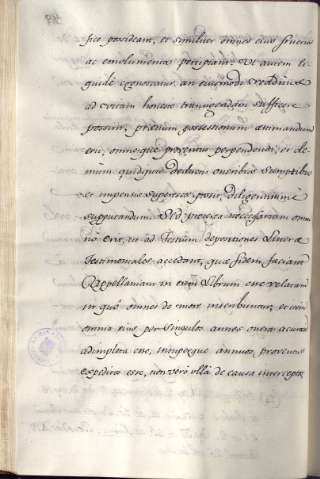 fice possideant, et similiter omnes eius fructus
ac emolumenta percipiant. Ut autem li
quide cognoscatur, an eiusmodi reditus
ad vitam honeste transigendam sufficere
possint, prætium possessionum æstimandum
erit, omnesque proventus perpendendi, et de
mum quidquid deductis oneribus sumptibus
et impensis superesse potest, diligentissime
supputandum. Sed præterea necessarium om
nino erit, ut ad Initium depositiones litteræ
testimoniales accedant, quæ fidem faciant
Cappellaniam in eum librum esse relatam
in quo omnes de more inscribuntur, et
omnia eius per singulos annos onera accurate
adimpleta esse, insuperque annuos proventus
expeditos esse, non vero ulla de causa interceptos